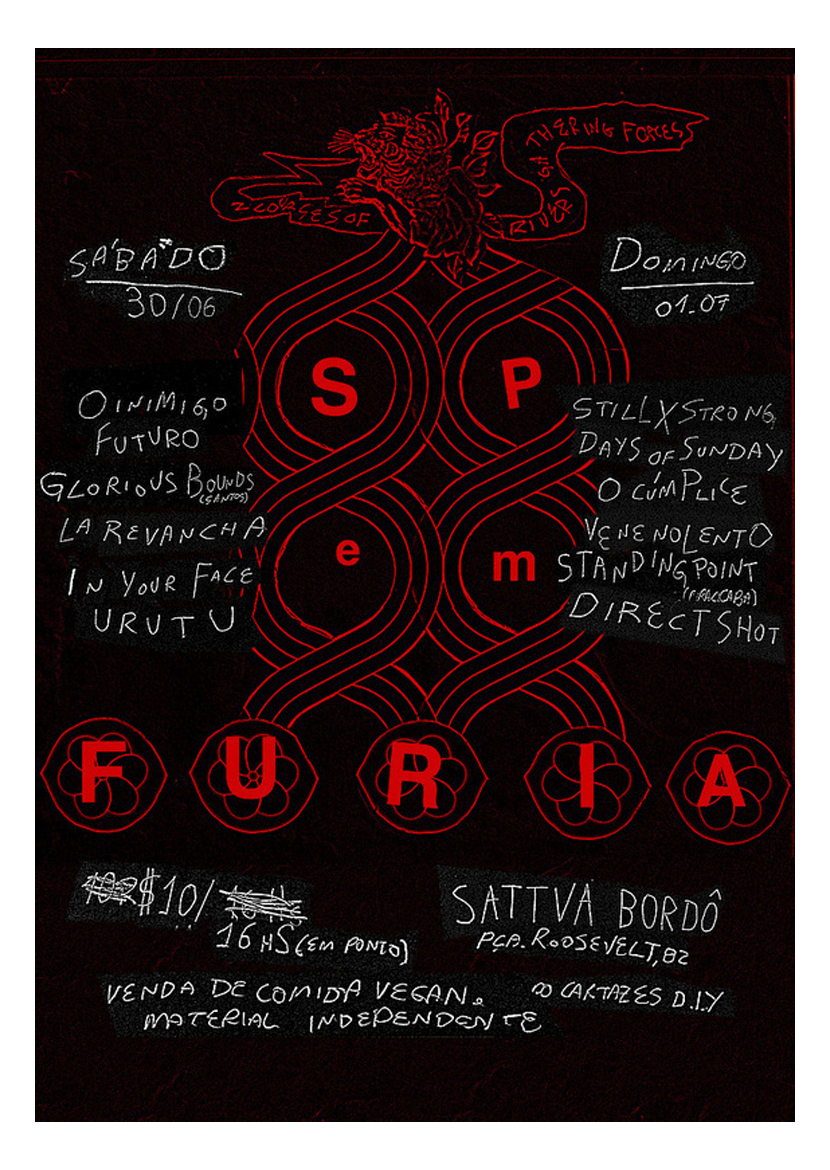 THERING FORCESS
RIVERS GA
OF
SÁBADO
30/06
DOMINGO
01.07
S P
e m
O INIMIGO
FUTURO
GLORIOUS BOUNDS
(SANTOS)
LA REVANCHA
IN YOUR FACE
URUTU
STILLXSTRONG
DAYS OF SUNDAY
O CÚMPLICE
VENENOLENTO
STANDINGPOINT
(PIRACICABA)
DIRECTSHOT
FURIA
$10/
16 HS (EM PONTO)
SATTVA BORDÔ
PÇA. ROOSEVELT, 82
VENDA DE COMIDA VEGAN.
MATERIAL INDEPENDENTE
CARTAZES D.I.Y